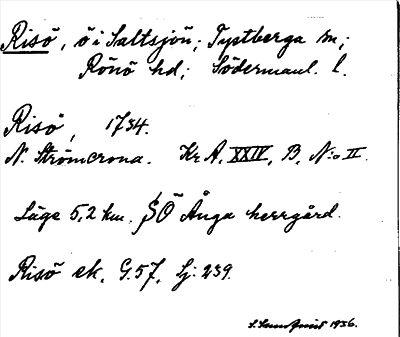 Risö, ö i Saltsjön; Tystberga sn;
Rönö hd; Södermanl. l.
Risö, 1734.
N. Strömcrona. Kr A, XXIV, B, N:o II.
Läge 5,2 km. SÖ Ånga herrgård.
Risö ek. G.57, Lj: 239.
S. Sundquist 1936.